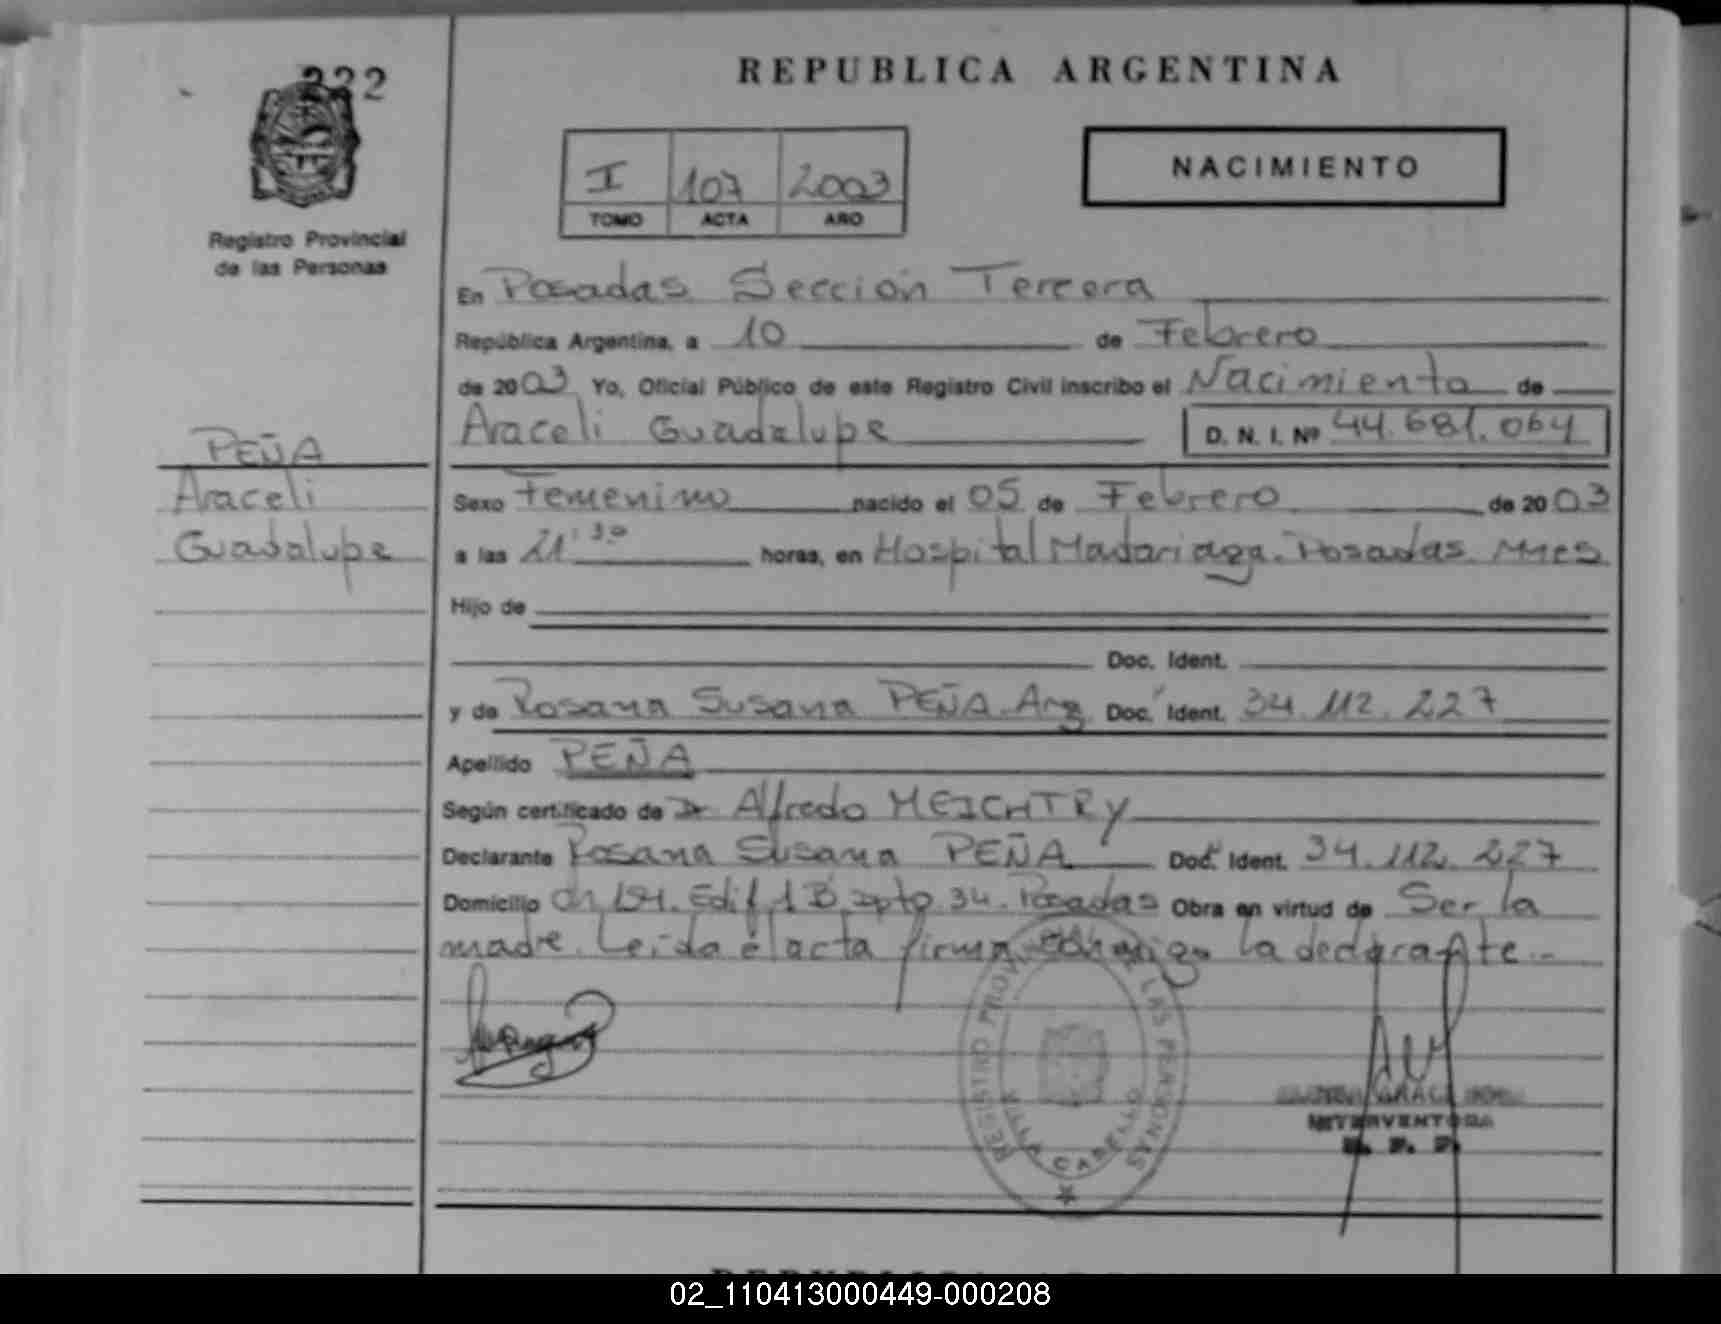 222
REPUBLICA ARGENTINA
I 107 2003
TOMO ACTA AÑO
NACIMIENTO
Registro Provincial
de las Personas
En Posadas Sección Tercera
República Argentina, a 10 de Febrero
de 2003 Yo, Oficial Público de este Registro Civil inscribo el Nacimiento de
Araceli Guadalupe D. N. I. Nº 44.681.064
PEÑA
Araceli
Guadalupe
Sexo Femenino nacido el 05 de Febrero de 2003
a las 21:30 horas, en Hospital Madariaga. Posadas. Mnes
Hijo de
Doc. Ident.
y de Rosana Susana PEÑA. Arg Doc. Ident. 34.112.227
Apellido PEÑA
Según certificado de Dr Alfredo MEICHTRY
Declarante Rosana Susana PEÑA Doc. Ident. 34.112.227
Domicilio Edif 1 B Dpto 34. Posadas Obra en virtud de Ser la
madre. Leída el acta firma conmigo la declarante.-
REGISTRO PROV LAS PERSONAS
VILLA CABELLO
INTERVENTORA
02_110413000449-000208